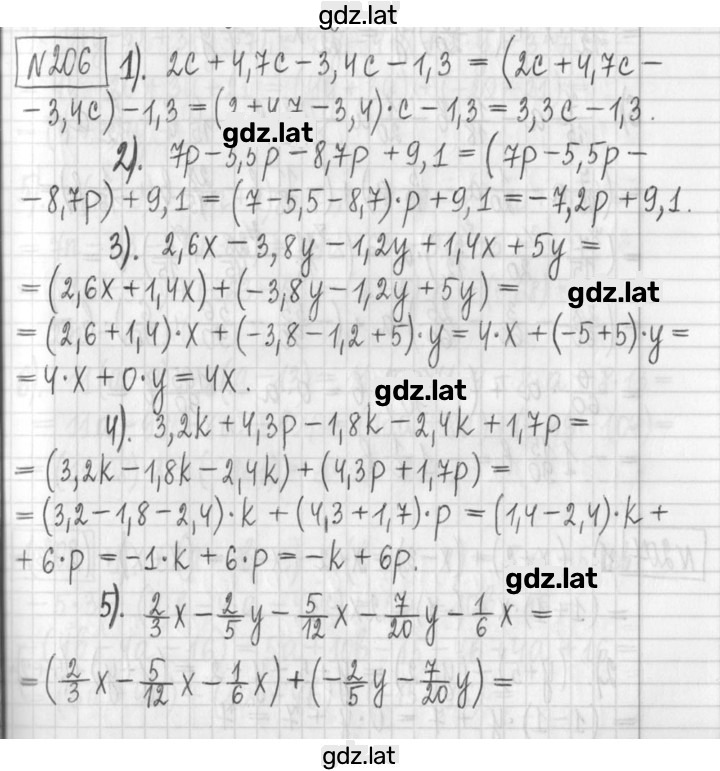 gdz.lat
N206 1). 2c + 4,7c - 3,4c - 1,3 = (2c + 4,7c -
- 3,4c) - 1,3 = (2 + 4,7 - 3,4)·c - 1,3 = 3,3c - 1,3.
gdz.lat
2). 7p - 5,5p - 8,7p + 9,1 = (7p - 5,5p -
- 8,7p) + 9,1 = (7 - 5,5 - 8,7)·p + 9,1 = -7,2p + 9,1.
3). 2,6x - 3,8y - 1,2y + 1,4x + 5y =
= (2,6x + 1,4x) + (-3,8y - 1,2y + 5y) =
gdz.lat
= (2,6 + 1,4)·x + (-3,8 - 1,2 + 5)·y = 4·x + (-5 + 5)·y =
= 4·x + 0·y = 4x.
gdz.lat
4). 3,2k + 4,3p - 1,8k - 2,4k + 1,7p =
= (3,2k - 1,8k - 2,4k) + (4,3p + 1,7p) =
= (3,2 - 1,8 - 2,4)·k + (4,3 + 1,7)·p = (1,4 - 2,4)·k +
+ 6·p = -1·k + 6·p = -k + 6p.
gdz.lat
5). 2/3 x - 2/5 y - 5/12 x - 7/20 y - 1/6 x =
= (2/3 x - 5/12 x - 1/6 x) + (-2/5 y - 7/20 y) =
gdz.lat